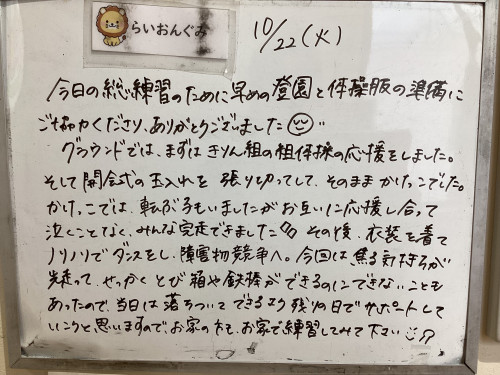 らいおんぐみ
10/22(火)
今日の総練習のために早めの登園と体操服の準備に
ご協力くださり、ありがとうございました
グラウンドでは、まずはきりん組の組体操の応援をしました。
そして開会式の玉入れを張り切ってして、そのままかけっこでした。
かけっこでは、転ぶ子もいましたがお互いに応援し合って
泣くことなく、みんな完走できました その後、衣装を着て
ノリノリでダンスをし、障害物競争へ。今回は焦る気持ちが
先走って、せっかくとび箱や鉄棒ができるのにできないことも
あったので、当日は落ちついてできるよう残りの日でサポートして
いこうと思いますので、お家の方も、お家で練習してみて下さい